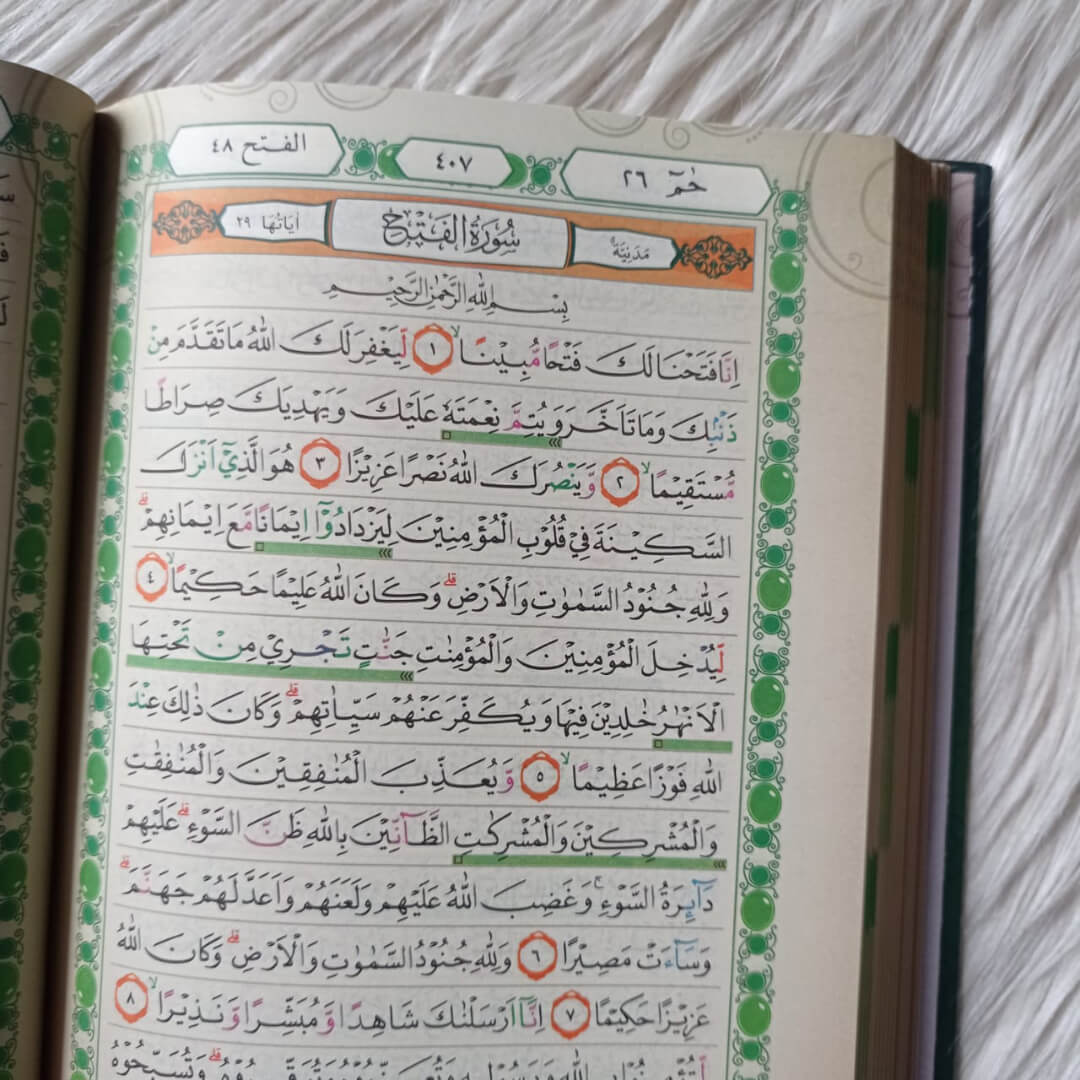 حٰمۤ ٢٦
٤٠٧
الفتح ٤٨
مَدَنِيَّةٌ
سُوْرَةُ الْفَتْحِ
اٰيَاتُهَا ٢٩
بِسْمِ اللّٰهِ الرَّحْمٰنِ الرَّحِيْمِ
اِنَّا فَتَحْنَا لَكَ فَتْحًا مُّبِيْنًاۙ ١ لِّيَغْفِرَ لَكَ اللّٰهُ مَا تَقَدَّمَ مِنْ
ذَنْۢبِكَ وَمَا تَاَخَّرَ وَيُتِمَّ نِعْمَتَهٗ عَلَيْكَ وَيَهْدِيَكَ صِرَاطًا
مُّسْتَقِيْمًاۙ ٢ وَّيَنْصُرَكَ اللّٰهُ نَصْرًا عَزِيْزًا ٣ هُوَ الَّذِيْٓ اَنْزَلَ
السَّكِيْنَةَ فِيْ قُلُوْبِ الْمُؤْمِنِيْنَ لِيَزْدَادُوْٓا اِيْمَانًا مَّعَ اِيْمَانِهِمْۗ
وَلِلّٰهِ جُنُوْدُ السَّمٰوٰتِ وَالْاَرْضِۗ وَكَانَ اللّٰهُ عَلِيْمًا حَكِيْمًاۙ ٤
لِّيُدْخِلَ الْمُؤْمِنِيْنَ وَالْمُؤْمِنٰتِ جَنّٰتٍ تَجْرِيْ مِنْ تَحْتِهَا
الْاَنْهٰرُ خٰلِدِيْنَ فِيْهَا وَيُكَفِّرَ عَنْهُمْ سَيِّاٰتِهِمْۗ وَكَانَ ذٰلِكَ عِنْدَ
اللّٰهِ فَوْزًا عَظِيْمًاۙ ٥ وَّيُعَذِّبَ الْمُنٰفِقِيْنَ وَالْمُنٰفِقٰتِ
وَالْمُشْرِكِيْنَ وَالْمُشْرِكٰتِ الظَّاۤنِّيْنَ بِاللّٰهِ ظَنَّ السَّوْءِۗ عَلَيْهِمْ
دَاۤىِٕرَةُ السَّوْءِۚ وَغَضِبَ اللّٰهُ عَلَيْهِمْ وَلَعَنَهُمْ وَاَعَدَّ لَهُمْ جَهَنَّمَۗ
وَسَاۤءَتْ مَصِيْرًا ٦ وَلِلّٰهِ جُنُوْدُ السَّمٰوٰتِ وَالْاَرْضِۗ وَكَانَ اللّٰهُ
عَزِيْزًا حَكِيْمًا ٧ اِنَّآ اَرْسَلْنٰكَ شَاهِدًا وَّمُبَشِّرًا وَّنَذِيْرًاۙ ٨
لِّتُؤْمِنُوْا بِاللّٰهِ وَرَسُوْلِهٖ وَتُعَزِّرُوْهُ وَتُوَقِّرُوْهُۗ وَتُسَبِّحُوْهُ